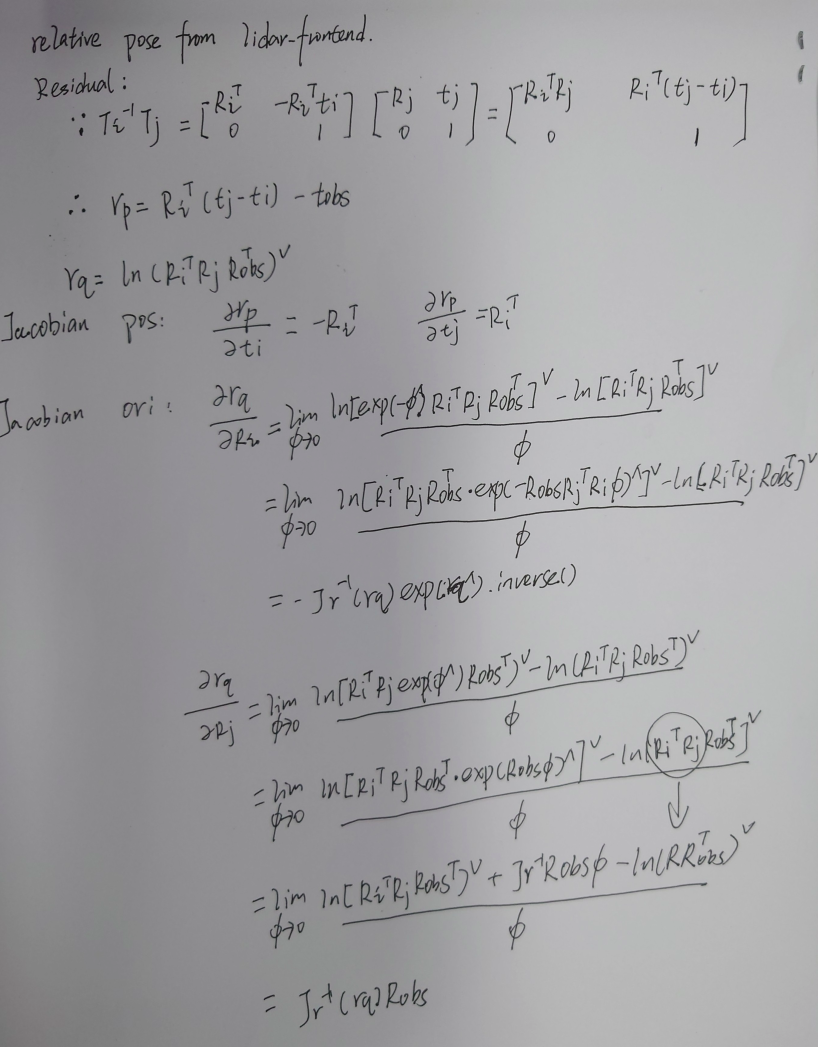 relative pose from lidar-frontend.
Residual:
∵ Ti⁻¹Tj = [Ri^T -Ri^T ti; 0 1] [Rj tj; 0 1] = [Ri^T Rj Ri^T(tj-ti); 0 1]
∴ rp = Ri^T (tj-ti) - tobs
rq = ln(Ri^T Rj Robs^T)^∨
Jacobian pos: ∂rp/∂ti = -Ri^T ∂rp/∂tj = Ri^T
Jacobian ori: ∂rq/∂Ri = lim ϕ→0 ln[exp(-ϕ^) Ri^T Rj Robs^T]^∨ - ln[Ri^T Rj Robs^T]^∨ / ϕ
= lim ϕ→0 ln[Ri^T Rj Robs^T · exp(-Robs Rj^T Ri ϕ)^]^∨ - ln[Ri^T Rj Robs^T]^∨ / ϕ
= - Jr⁻¹(rq) exp(rq^).inverse()
∂rq/∂Rj = lim ϕ→0 ln[Ri^T Rj exp(ϕ^) Robs^T)^∨ - ln(Ri^T Rj Robs^T)^∨ / ϕ
= lim ϕ→0 ln[Ri^T Rj Robs^T · exp(Robs ϕ)^]^∨ - ln(Ri^T Rj Robs^T]^∨ / ϕ
= lim ϕ→0 ln[Ri^T Rj Robs^T)^∨ + Jr⁻¹ Robs ϕ - ln(R Robs^T)^∨ / ϕ
= Jr⁻¹(rq) Robs